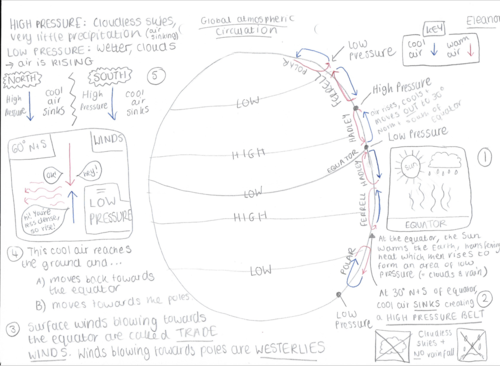 HIGH PRESSURE: Cloudless skies,
very little precipitation (air sinking)
LOW PRESSURE: Wetter, clouds
→ air is RISING
Global atmospheric
Circulation
KEY
cool air ↓
warm air ↓
Eleanor
NORTH
SOUTH
5
High Pressure
cool air sinks
High Pressure
Cool air sinks
60° N+S
WINDS
LOW PRESSURE
4 This cool air reaches
the ground and...
A) moves back towards
the equator
B) moves towards the poles
3 Surface winds blowing towards
the equator are called TRADE
WINDS. Winds blowing towards poles are WESTERLIES
LOW
HIGH
EQUATOR
LOW
HIGH
LOW
POLAR
FERRELL
HADLEY
HADLEY
FERRELL
POLAR
LOW PRESSURE
High Pressure
air rises, cools +
moves out to 30°
North + South of
equator
Low Pressure
Low Pressure
1
Sun
EQUATOR
At the equator, the Sun
warms the Earth, transferring
heat which then rises to
form an area of low
pressure (- clouds + rain)
At 30° N+S of equator,
cool air SINKS creating 2
a HIGH PRESSURE BELT
Cloudless
skies +
NO rainfall